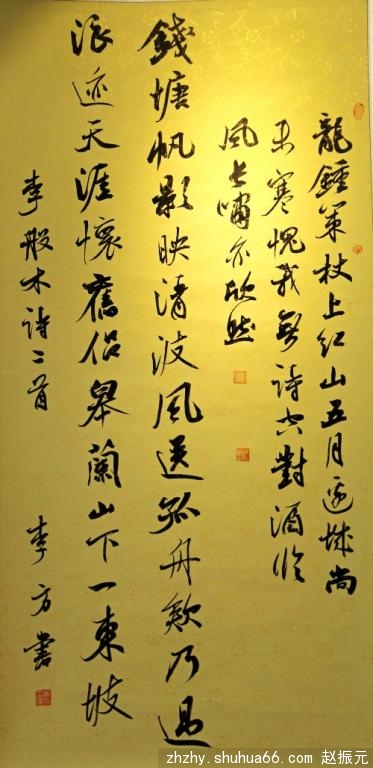 龍鍾策杖上红山五月邊城尚
未寒愧我無詩空對酒臨
風長嘯亦欣然
錢塘帆影映清波風送孤舟欸乃過
浪迹天涯懷舊侣皋蘭山下一東坡
李般木詩二首
李方書
zhzhy.shuhua66.com 赵振元